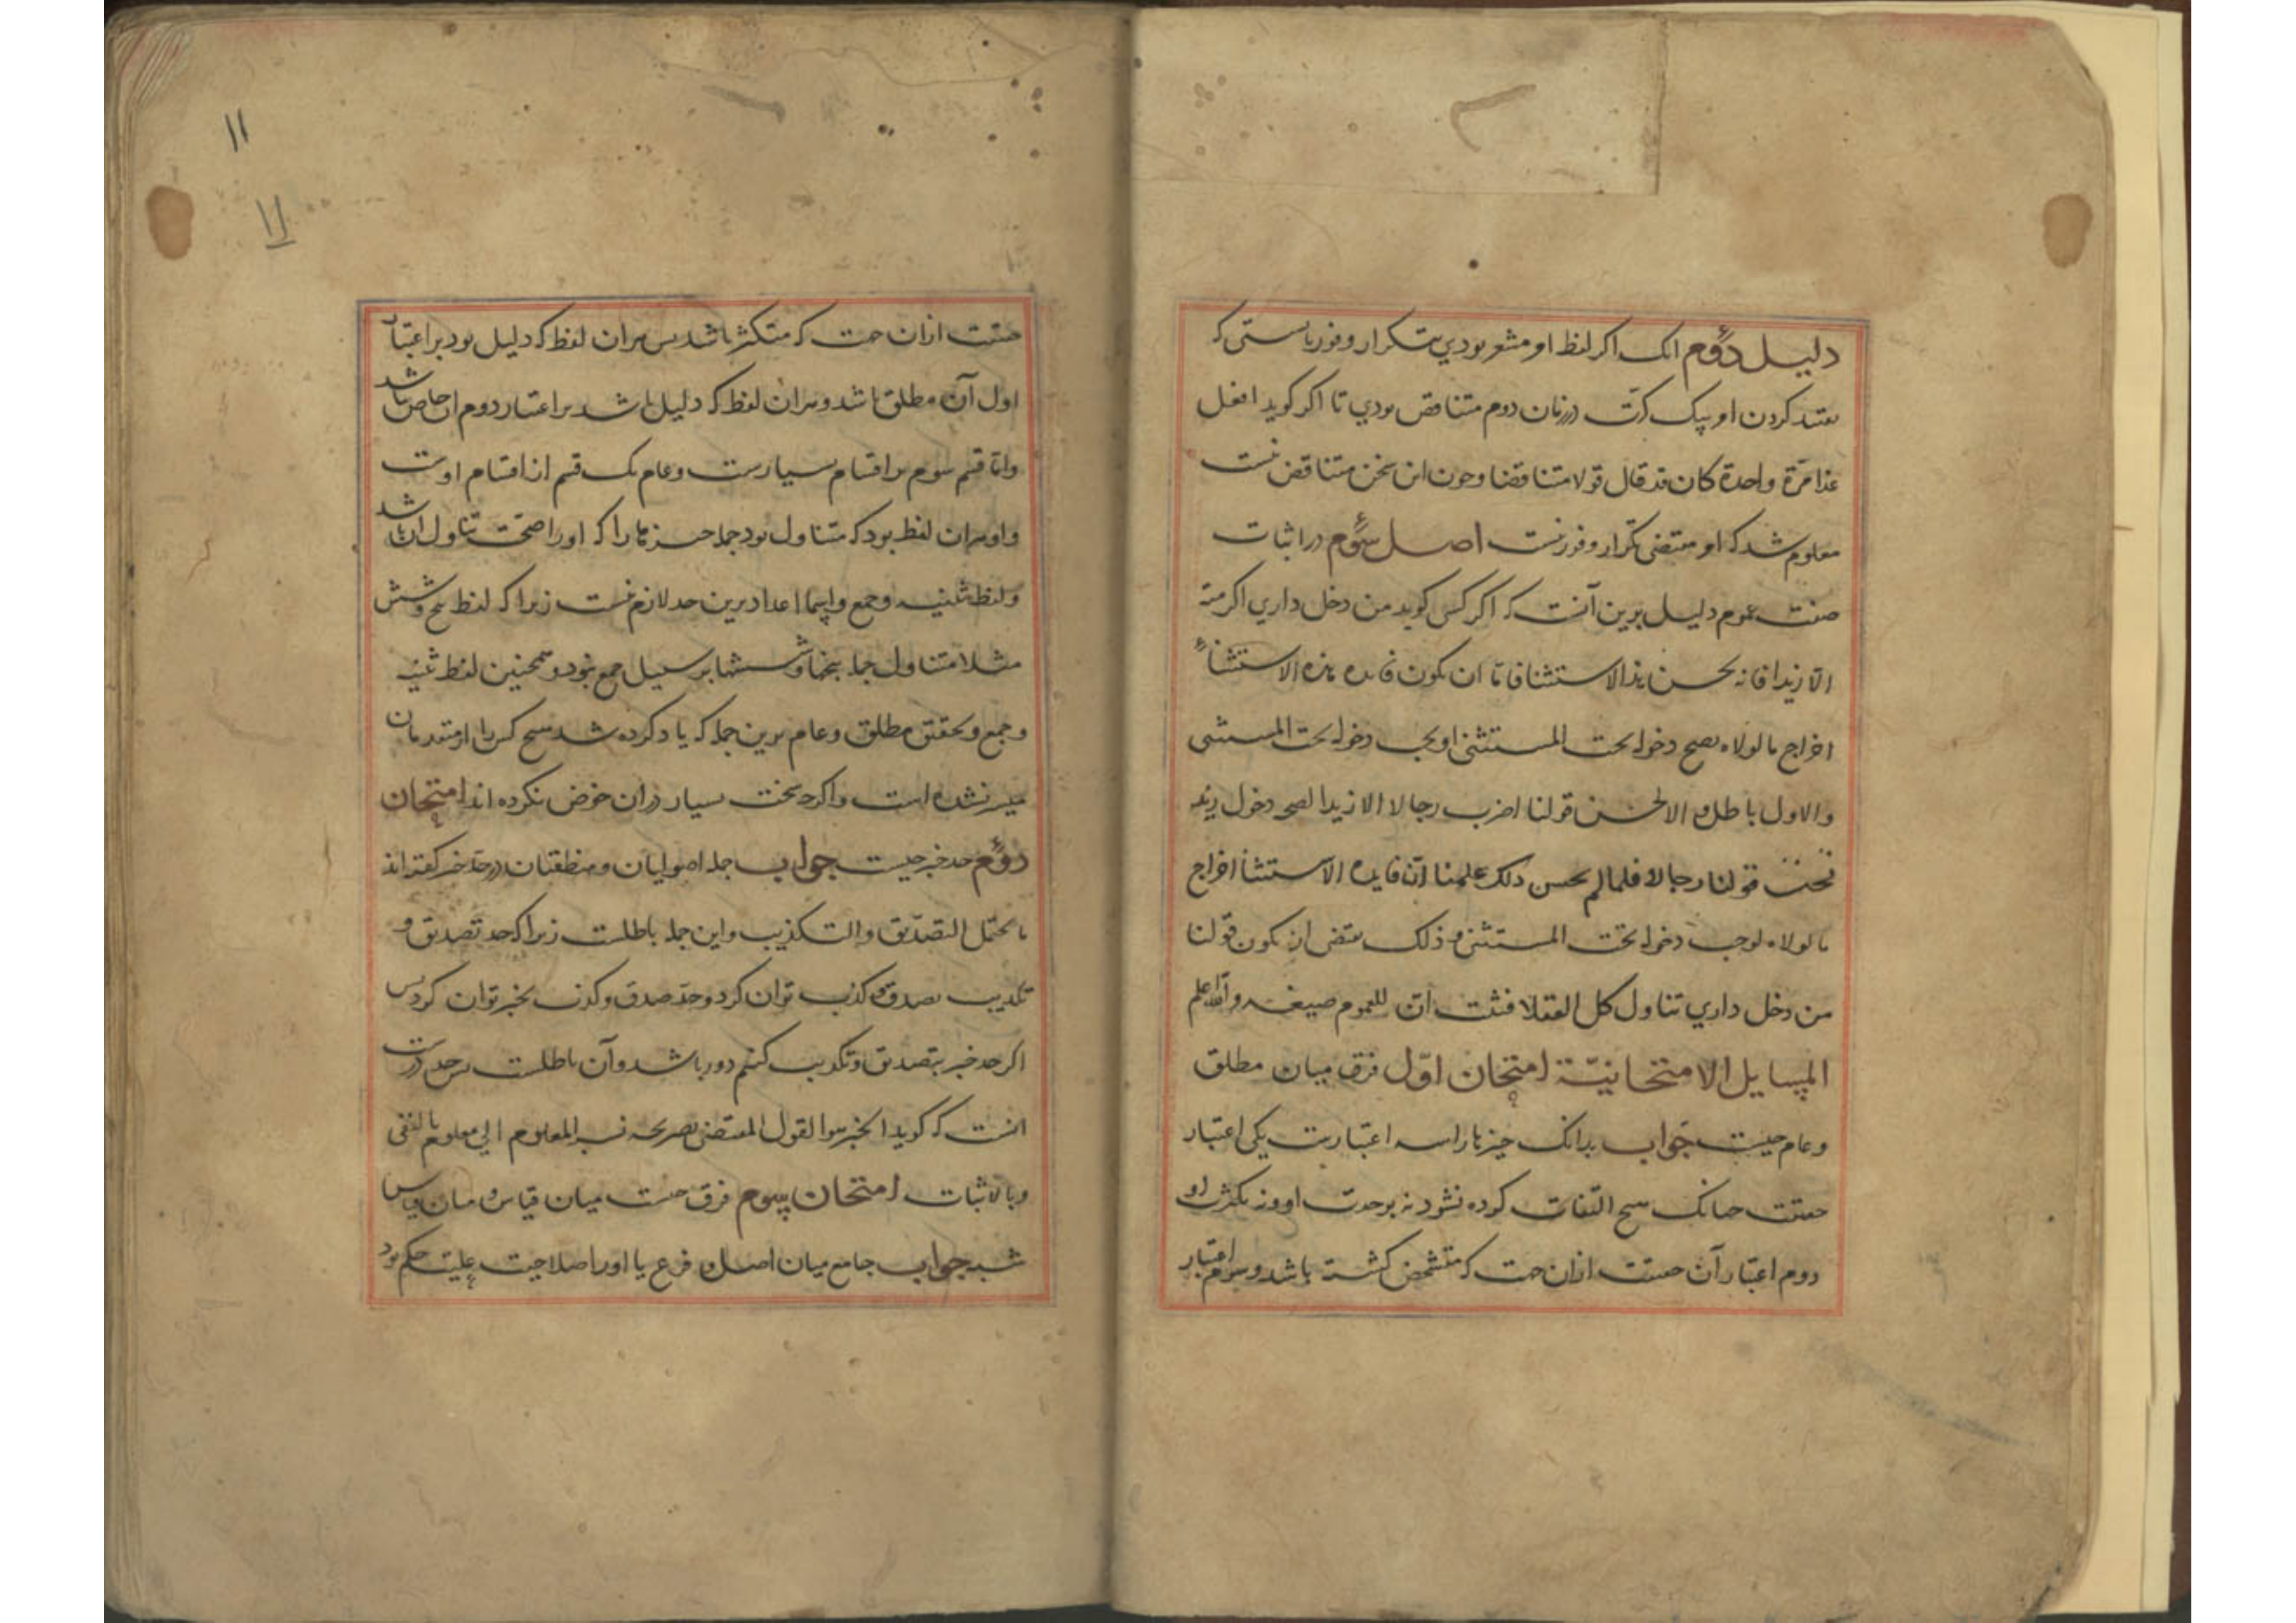 دلیل دوم انک اکر لفظ او مشعر بودی بتکرار وفور بایستی که
مقید کردن او بیک کرّت در زمان دوم متناقض بودی تا اکر کوید افعل
غدا مرّة واحدة کان قد قال قولا متناقضا وچون این سخن متناقض نیست
معلوم شد که او مقتضی تکرار وفور نیست اصل سوم در اثبات
صفت عموم دلیل برین آنست که اکر کسی کوید من دخل داری اکرمته
الّا زیدا فانه یحسن هذا الاستثنا فاما ان یکون فایده هذه الاستثناء
اخراج ما لولاه یصح دخوله تحت المستثنی او یجب دخوله تحت المستثنی
والاول باطل والا لحسن قولنا اضرب رجالا الا زیدا لصحه دخول زید
تحت قولنا رجالا فلما لم یحسن ذلک علمنا انّ فایده الاستثنا اخراج
ما لولاه لوجب دخوله تحت المستثنی و ذلک یقتضی ان یکون قولنا
من دخل داری تناول کل العقلا فثبت انّ للعموم صیغه والله اعلم
المسایل الامتحانیّة امتحان اوّل فرق میان مطلق
وعام چیست جواب بدانک چیزها را سه اعتبارست یکی اعتبار
حقیقت چنانک هیچ التفات کرده نشود نه بوحدت او ونه بکثرت او
دوم اعتبار آن حقیقت ازان جهت که متشخص کشته باشد وسوم اعتبار
۱۱
۱۱
حقیقت ازان جهت که متکثر باشد پس هران لفظ که دلیل بود بر اعتبار
اول آن مطلق باشد وهران لفظ که دلیل باشد بر اعتبار دوم ان خاص باشد
وامّا قسم سوم بر اقسام بسیارست وعام یک قسم از اقسام اوست
واو هران لفظ بود که متناول بود جمله چیزها را که او را صحّت تناول ان باشد
ولفظ تثنیه وجمع واسماء اعداد برین حد لازم نیست زیرا که لفظ پنج وشش
مثلا متناول جمله پنجها وششها بر سبیل جمع نبود وهمچنین لفظ تثنیه
وجمع وتحقیق مطلق وعام برین جمله که یاد کرده شد هیچ کس را از متقدمان
میسر نشده است واکرچه سخت بسیار دران خوض نکرده اند امتحان
دوم حد خبر چیست جواب جمله اصولیان ومنطقیان در حد خبر کفته اند
ما یحتمل التصدیق والتکذیب واین جمله باطلست زیرا که حد تصدیق و
تکذیب بصدق وکذب توان کرد وحد صدق وکذب بخبر توان کرد پس
اکر حد خبر بتصدیق وتکذیب کنیم دور باشد وآن باطلست پس حد درست
انست که کوید الخبر هو القول المقتضی بصریحه نسبه المعلوم الی معلوم بالنفی
وبالاثبات امتحان سوم فرق چیست میان قیاس ومیان قیاس
شبه جواب جامع میان اصل و فرع یا او را صلاحیت علیت حکم بود